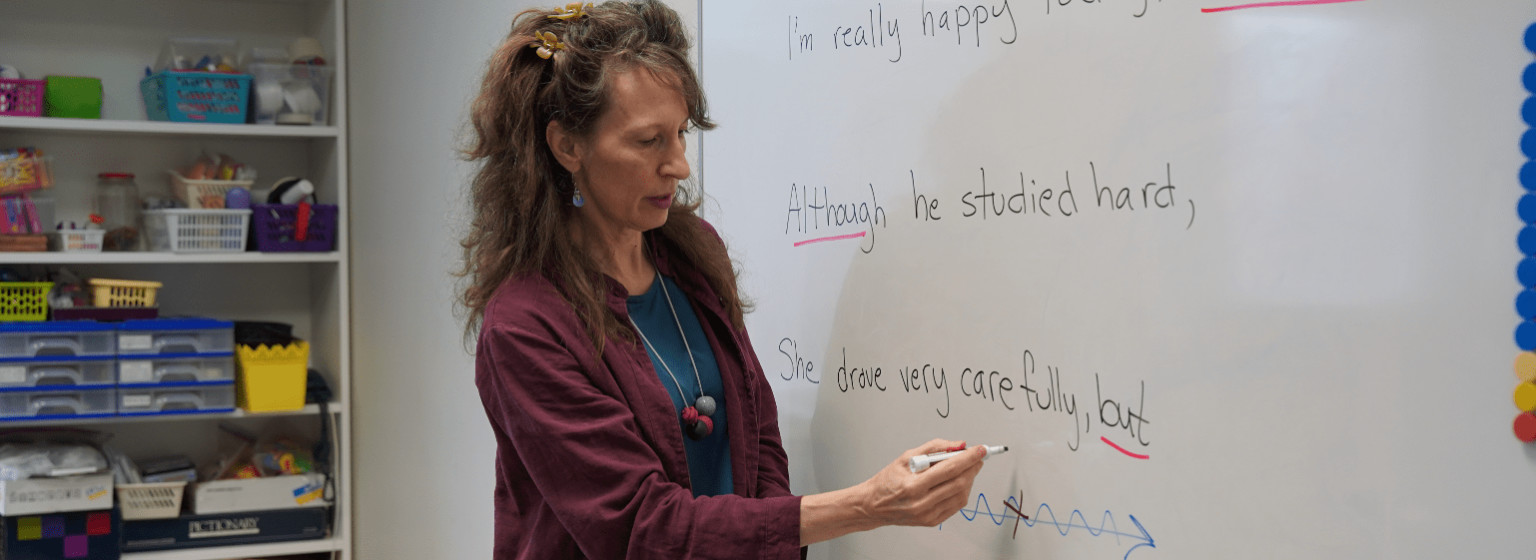 I'm really happy
Although he studied hard,
She drove very carefully, but
PICTIONARY